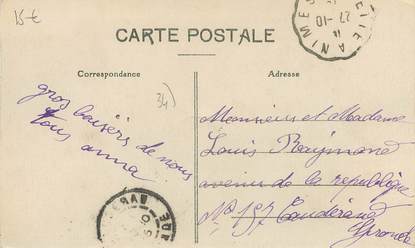 15€
CARTE POSTALE
Correspondance
Adresse
34)
gros baisers de nous
tous anna
Monsieur et Madame
Louis Raymond
avenue de la republique
No 157 Caudéran
Gironde
27 - 10